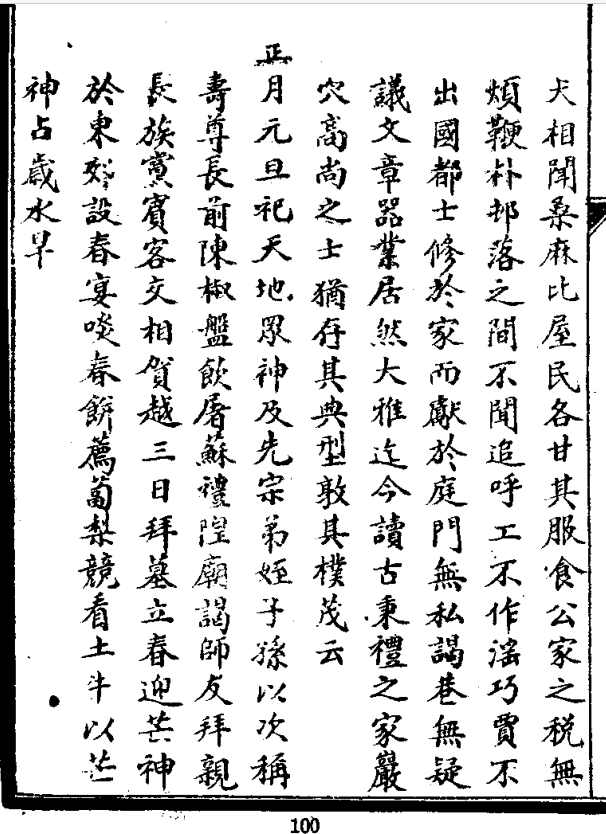 犬相聞桑麻比屋民各甘其服食公家之稅無
煩鞭朴邨落之間不聞追呼工不作滛巧賈不
出國都士修於家而獻於庭門無私謁巷無疑
議文章噐業居然大雅迄今讀古秉禮之家嚴
穴高尚之士猶存其典型敦其樸茂云
正月元旦祀天地眾神及先宗弟姪子孫以次稱
壽尊長前陳椒盤飲屠蘇禮隍廟謁師友拜親
長族黨賓客交相賀越三日拜墓立春迎芒神
於東郊設春宴啖春餅薦蔔梨競看土牛以芒
神占歲水旱
100